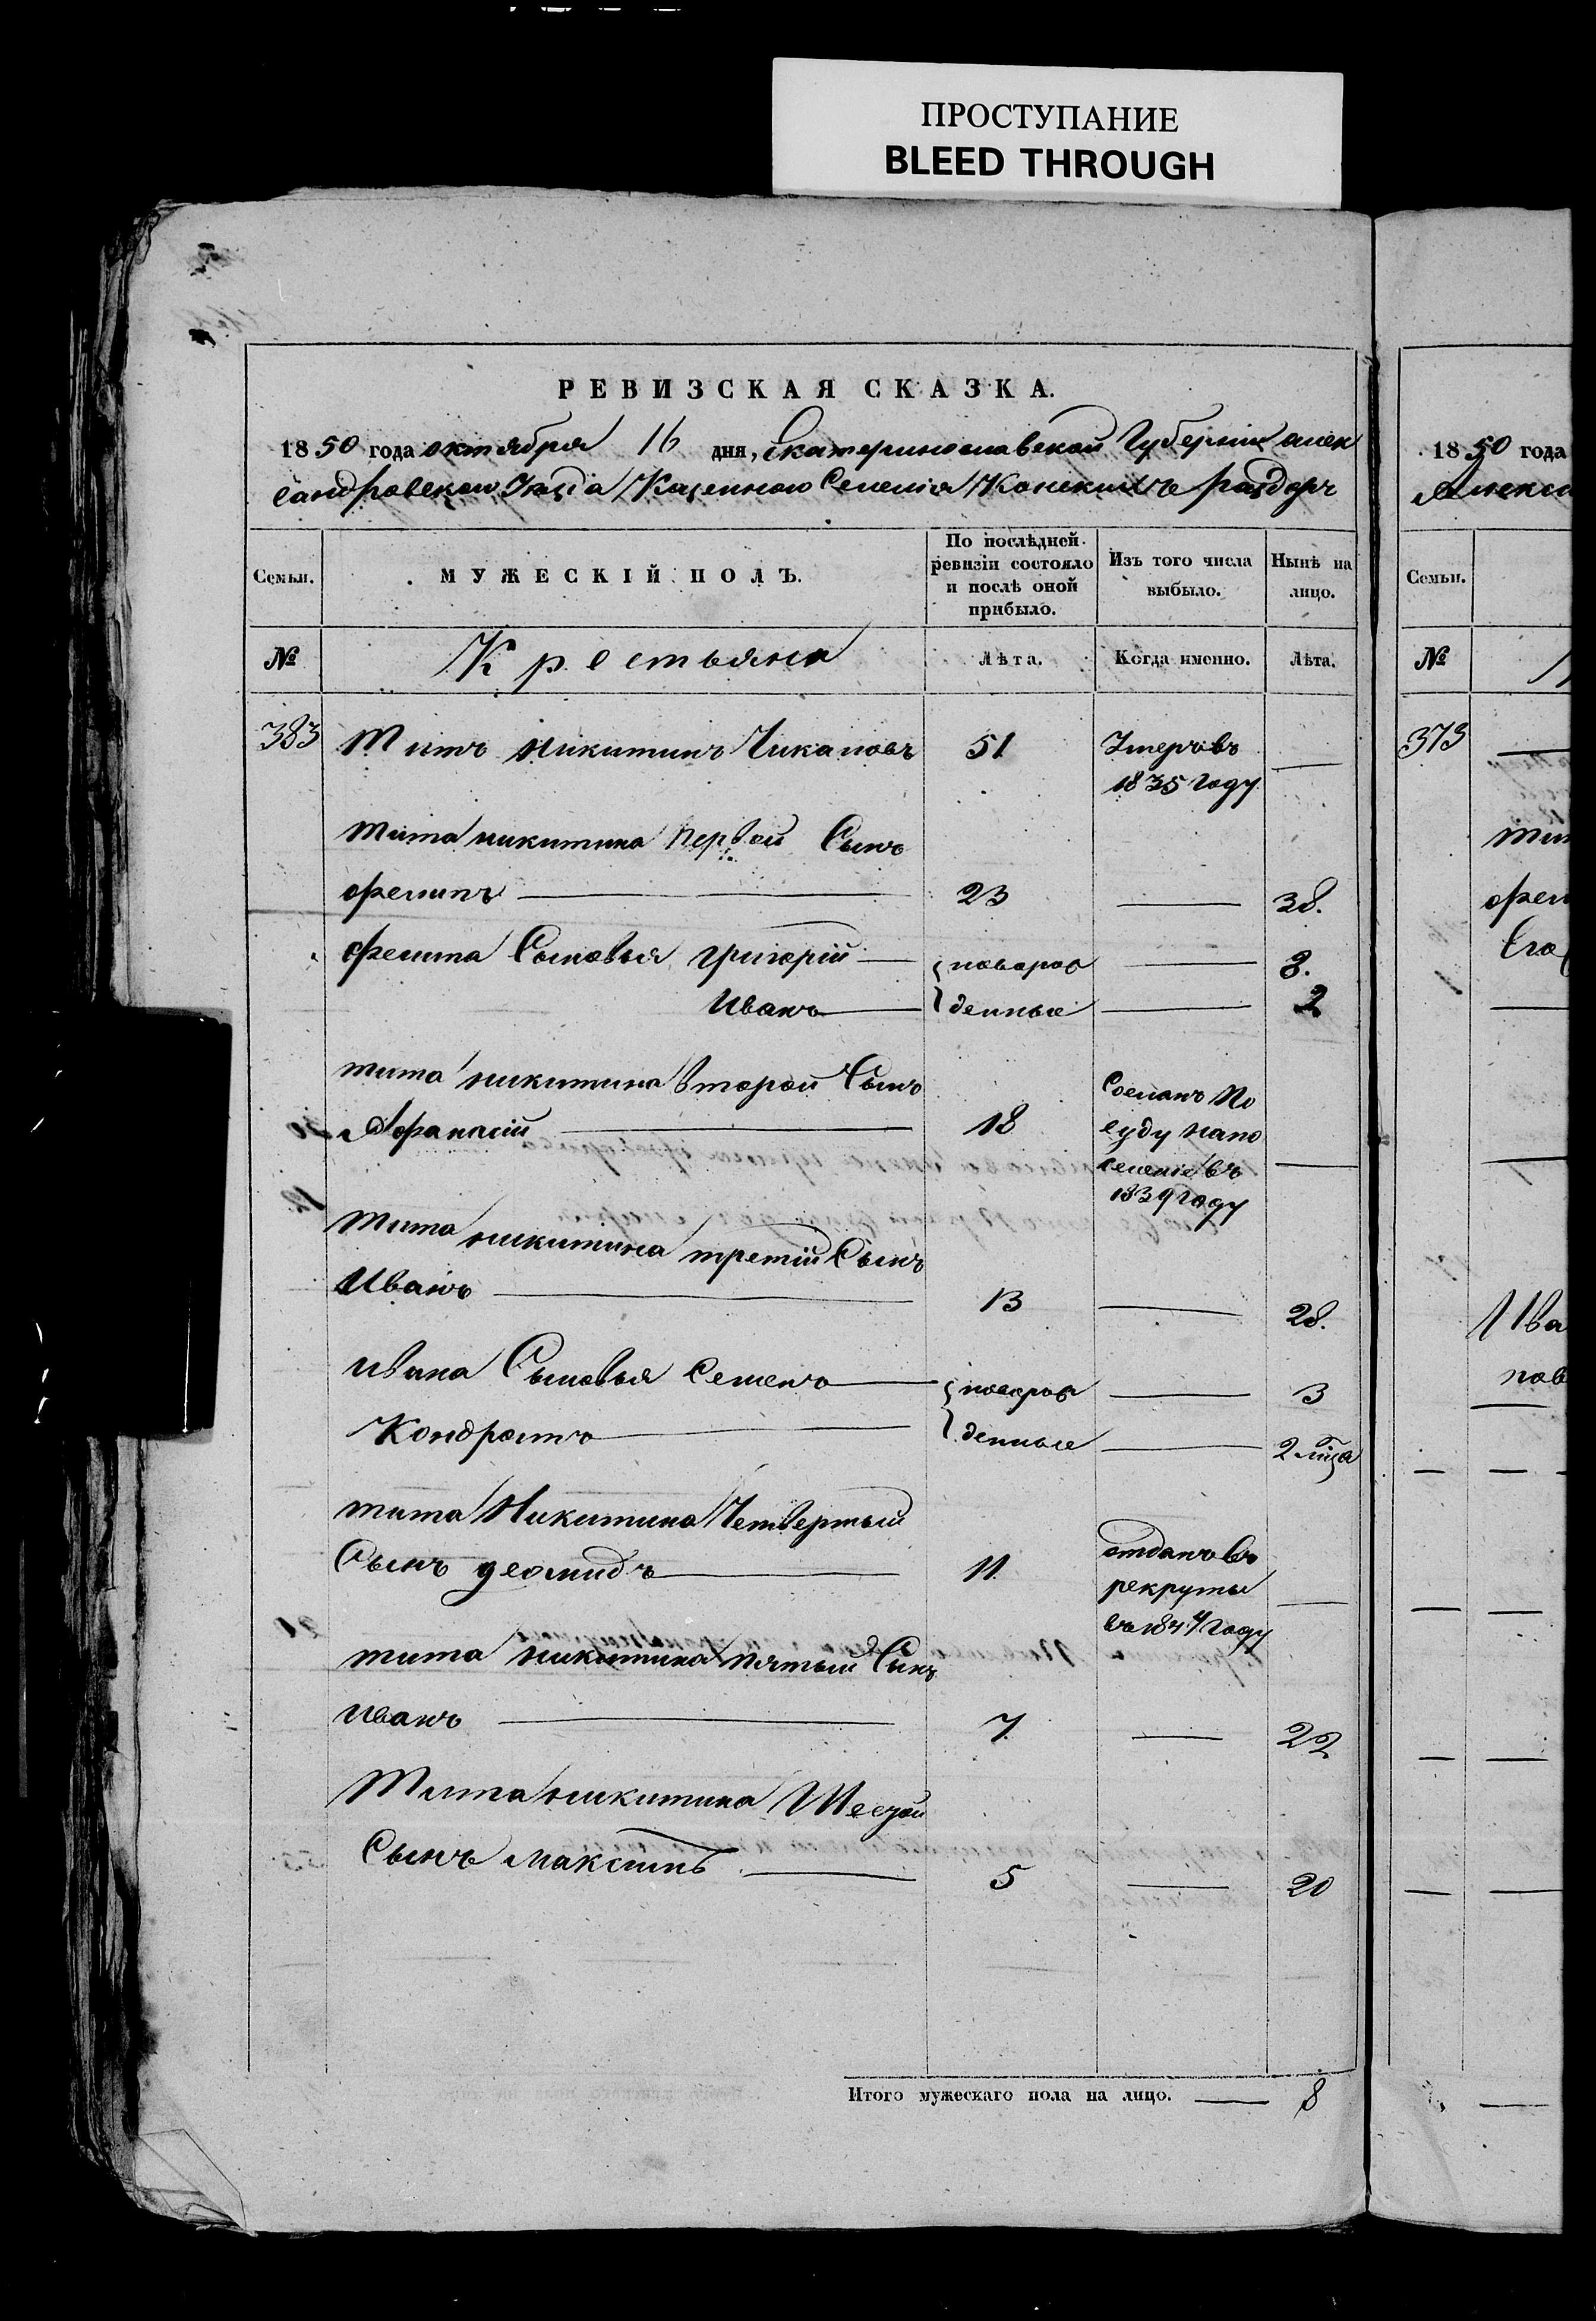 ПРОСТУПАНИЕ
BLEED THROUGH
РЕВИЗСКАЯ СКАЗКА.
1850 года октября 16 дня, Екатеринославской Губернии алек
сандровскаго уезда Казенного Селения Конскихъ раздоръ
Семьи.
МУЖЕСКІЙ ПОЛЪ.
По послѣдней ревизіи состояло и послѣ оной прибыло.
Изъ того числа выбыло.
Нынѣ на лицо.
№
Крестьяне
Лѣта.
Когда именно.
Лѣта.
383 Титъ никитинъ Чикановъ 51 Умеръ въ
1835 году
тита никитина первой Сынъ
филипъ 23 38.
филипа Сыновья григорій новорож 8.
Иванъ денные 2
тита никитина второй Сынъ
Афанасій 18 Сосланъ по
суду на по
селение въ
1839 году
тита никитина третій Сынъ
Иванъ 13 28.
ивана Сыновья Семенъ новорож 3
Кондратъ денные 2
тита Никитина Четвертый
Сынъ деомидъ 11 отданъ въ
рекруты
въ 1844 году
тита никитина пятый Сынъ
иванъ 7 22
Тита никитина Шестой
Сынъ максимъ 5 20
Итого мужескаго пола на лицо. 8
1850 года
Семьи.
№
373